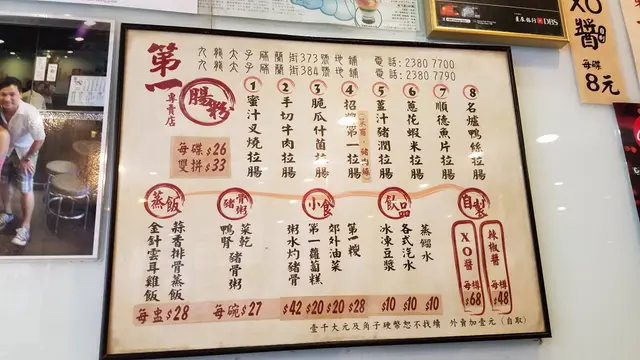 九龍大子麻蘭街373號地鋪 電話:2380 7700
九龍大子麻蘭街384號地鋪 電話:2380 7790
第一
專賣店
腸粉
每碟$26
雙拼$33
1 蜜汁叉燒拉腸
2 手切牛肉拉腸
3 脆瓜什菌拉腸
4 招牌第一拉腸
5 薑汁豬潤拉腸
6 蔥花蝦米拉腸
7 順德魚片拉腸
8 名爐鴨絲拉腸
蒸飯
蒜香排骨蒸飯
金針雲耳雞飯
每盅$28
豬骨粥
菜乾豬骨粥
鴨腎
每碗$27
小食
粥水灼豬骨
第一蘿蔔糕
郊外油菜
第一粽
$42 $20 $20 $28
飲品
冰凍豆漿
各式汽水
蒸餾水
$10 $10 $10
自製
XO醬
每樽$68
辣椒醬
每樽$48
壹千大元及角子硬幣恕不找續 外賣加壹元(自取)
XO
醬
每碟
8元
星展銀行 DBS